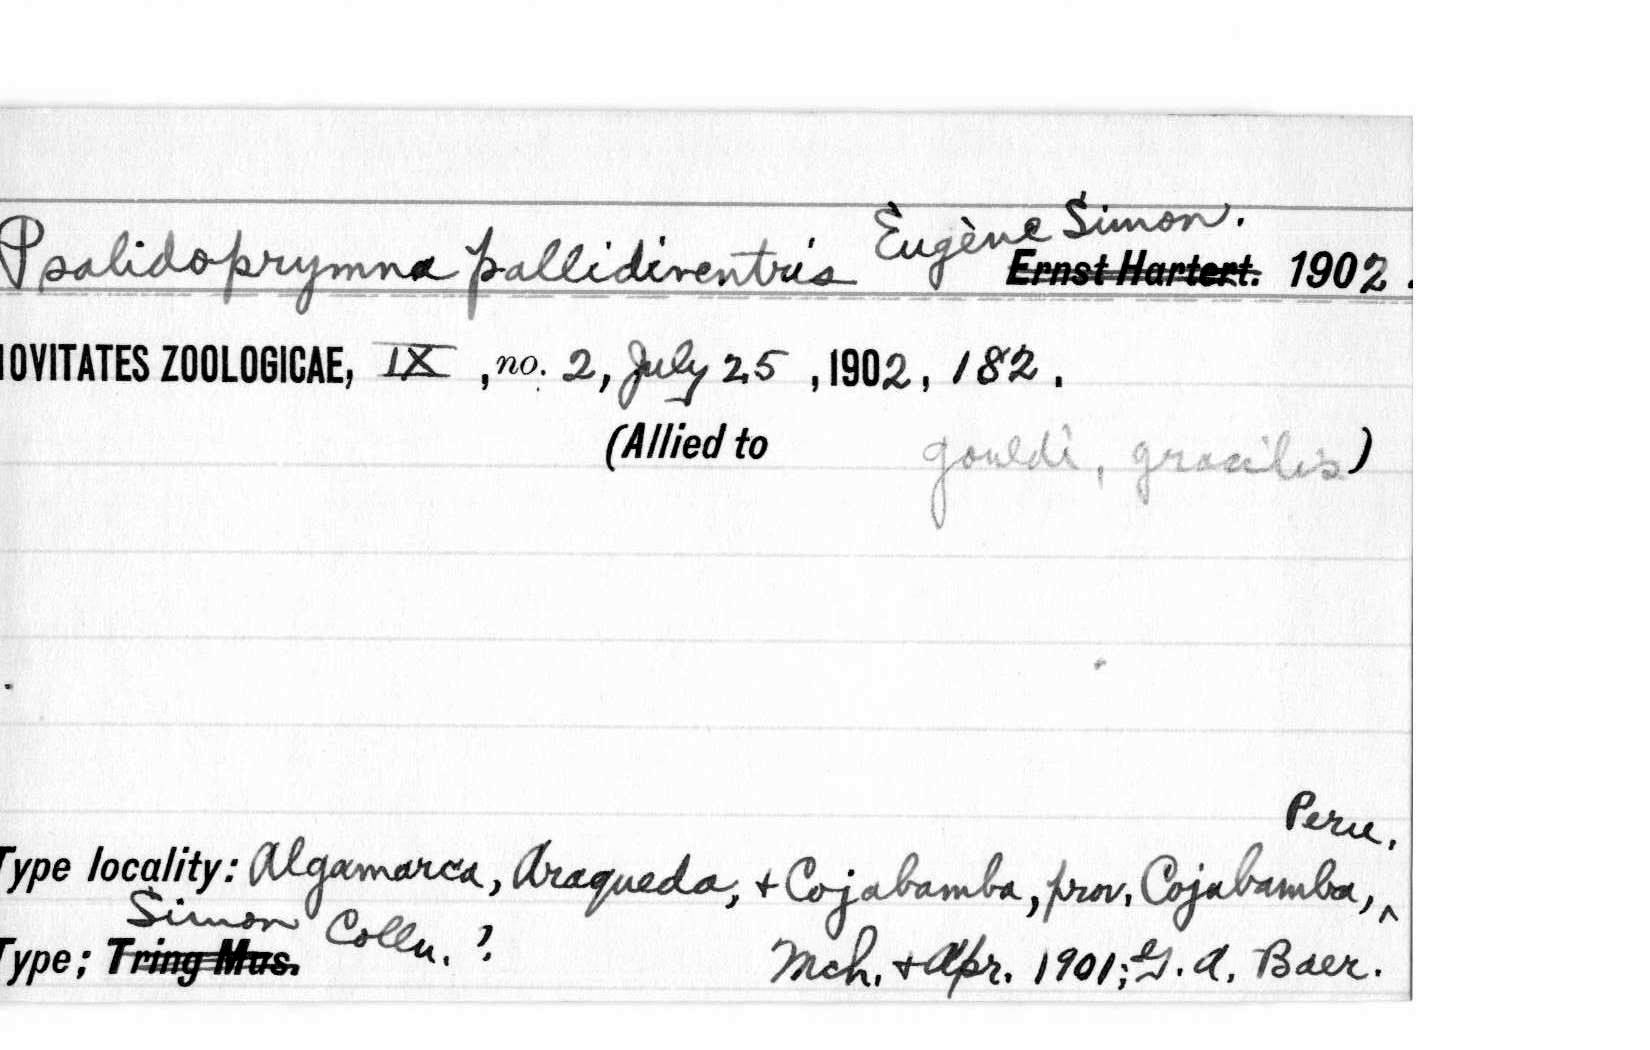 Psalidoprymna pallidiventris Eugène Simon.
Ernst Hartert. 1902.
NOVITATES ZOOLOGICAE, IX, no. 2, July 25, 1902, 182.
(Allied to gouldi, gracilis)
Peru,
Type locality: Algamarca, Araqueda, + Cojabamba, prov. Cojabamba, ^
Simon Colln. ?
Type; Tring Mus. Mch. + Apr. 1901; G. A. Baer.